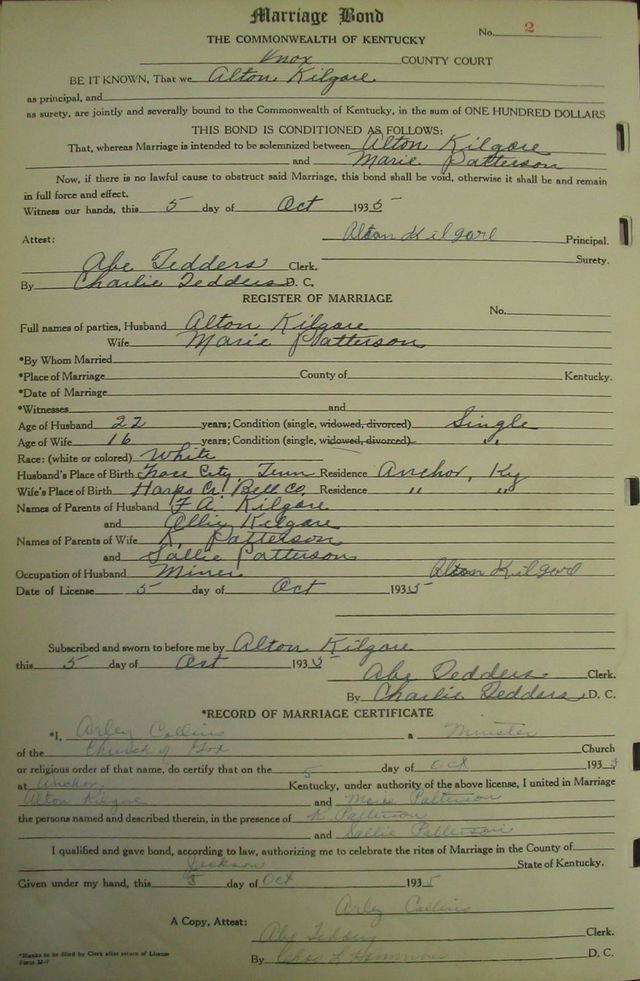 Marriage Bond
No. 2
THE COMMONWEALTH OF KENTUCKY
Knox COUNTY COURT
BE IT KNOWN, That we Alton Kilgore
as principal, and
as surety, are jointly and severally bound to the Commonwealth of Kentucky, in the sum of ONE HUNDRED DOLLARS
THIS BOND IS CONDITIONED AS FOLLOWS:
That, whereas Marriage is intended to be solemnized between Alton Kilgore
and Marie Patterson
Now, if there is no lawful cause to obstruct said Marriage, this bond shall be void, otherwise it shall be and remain
in full force and effect.
Witness our hands, this 5 day of Oct 1935
Attest: Alton Kilgore Principal.
Surety.
Abe Tedders Clerk.
By Charlie Tedders D. C.
REGISTER OF MARRIAGE
No.
Full names of parties, Husband Alton Kilgore
Wife Marie Patterson
*By Whom Married
*Place of Marriage County of Kentucky.
*Date of Marriage
*Witnesses and
Age of Husband 22 years; Condition (single, widowed, divorced) Single
Age of Wife 16 years; Condition (single, widowed, divorced) "
Race: (white or colored) White
Husband's Place of Birth City Tenn Residence Anchor, Ky
Wife's Place of Birth Harps Cr. Bell Co. Residence " "
Names of Parents of Husband F. A. Kilgore
and Ollie Kilgore
Names of Parents of Wife K. Patterson
and Sallie Patterson
Occupation of Husband Miner Alton Kilgore
Date of License 5 day of Oct 1935
Subscribed and sworn to before me by Alton Kilgore
this 5 day of Oct 1935
Abe Tedders Clerk.
By Charlie Tedders D. C.
*RECORD OF MARRIAGE CERTIFICATE
*I, Arley Collins a Minister
of the Church of God Church
or religious order of that name, do certify that on the 5 day of Oct 193
at Anchor, Kentucky, under authority of the above license, I united in Marriage
Alton Kilgore and Marie Patterson
the persons named and described therein, in the presence of K Patterson
and Sallie Patterson
I qualified and gave bond, according to law, authorizing me to celebrate the rites of Marriage in the County of
Jackson State of Kentucky.
Given under my hand, this 5 day of Oct 1935
Arley Collins
A Copy, Attest: Abe Tedders Clerk.
By D. C.
*Blanks to be filled by Clerk after return of License
Form M-7